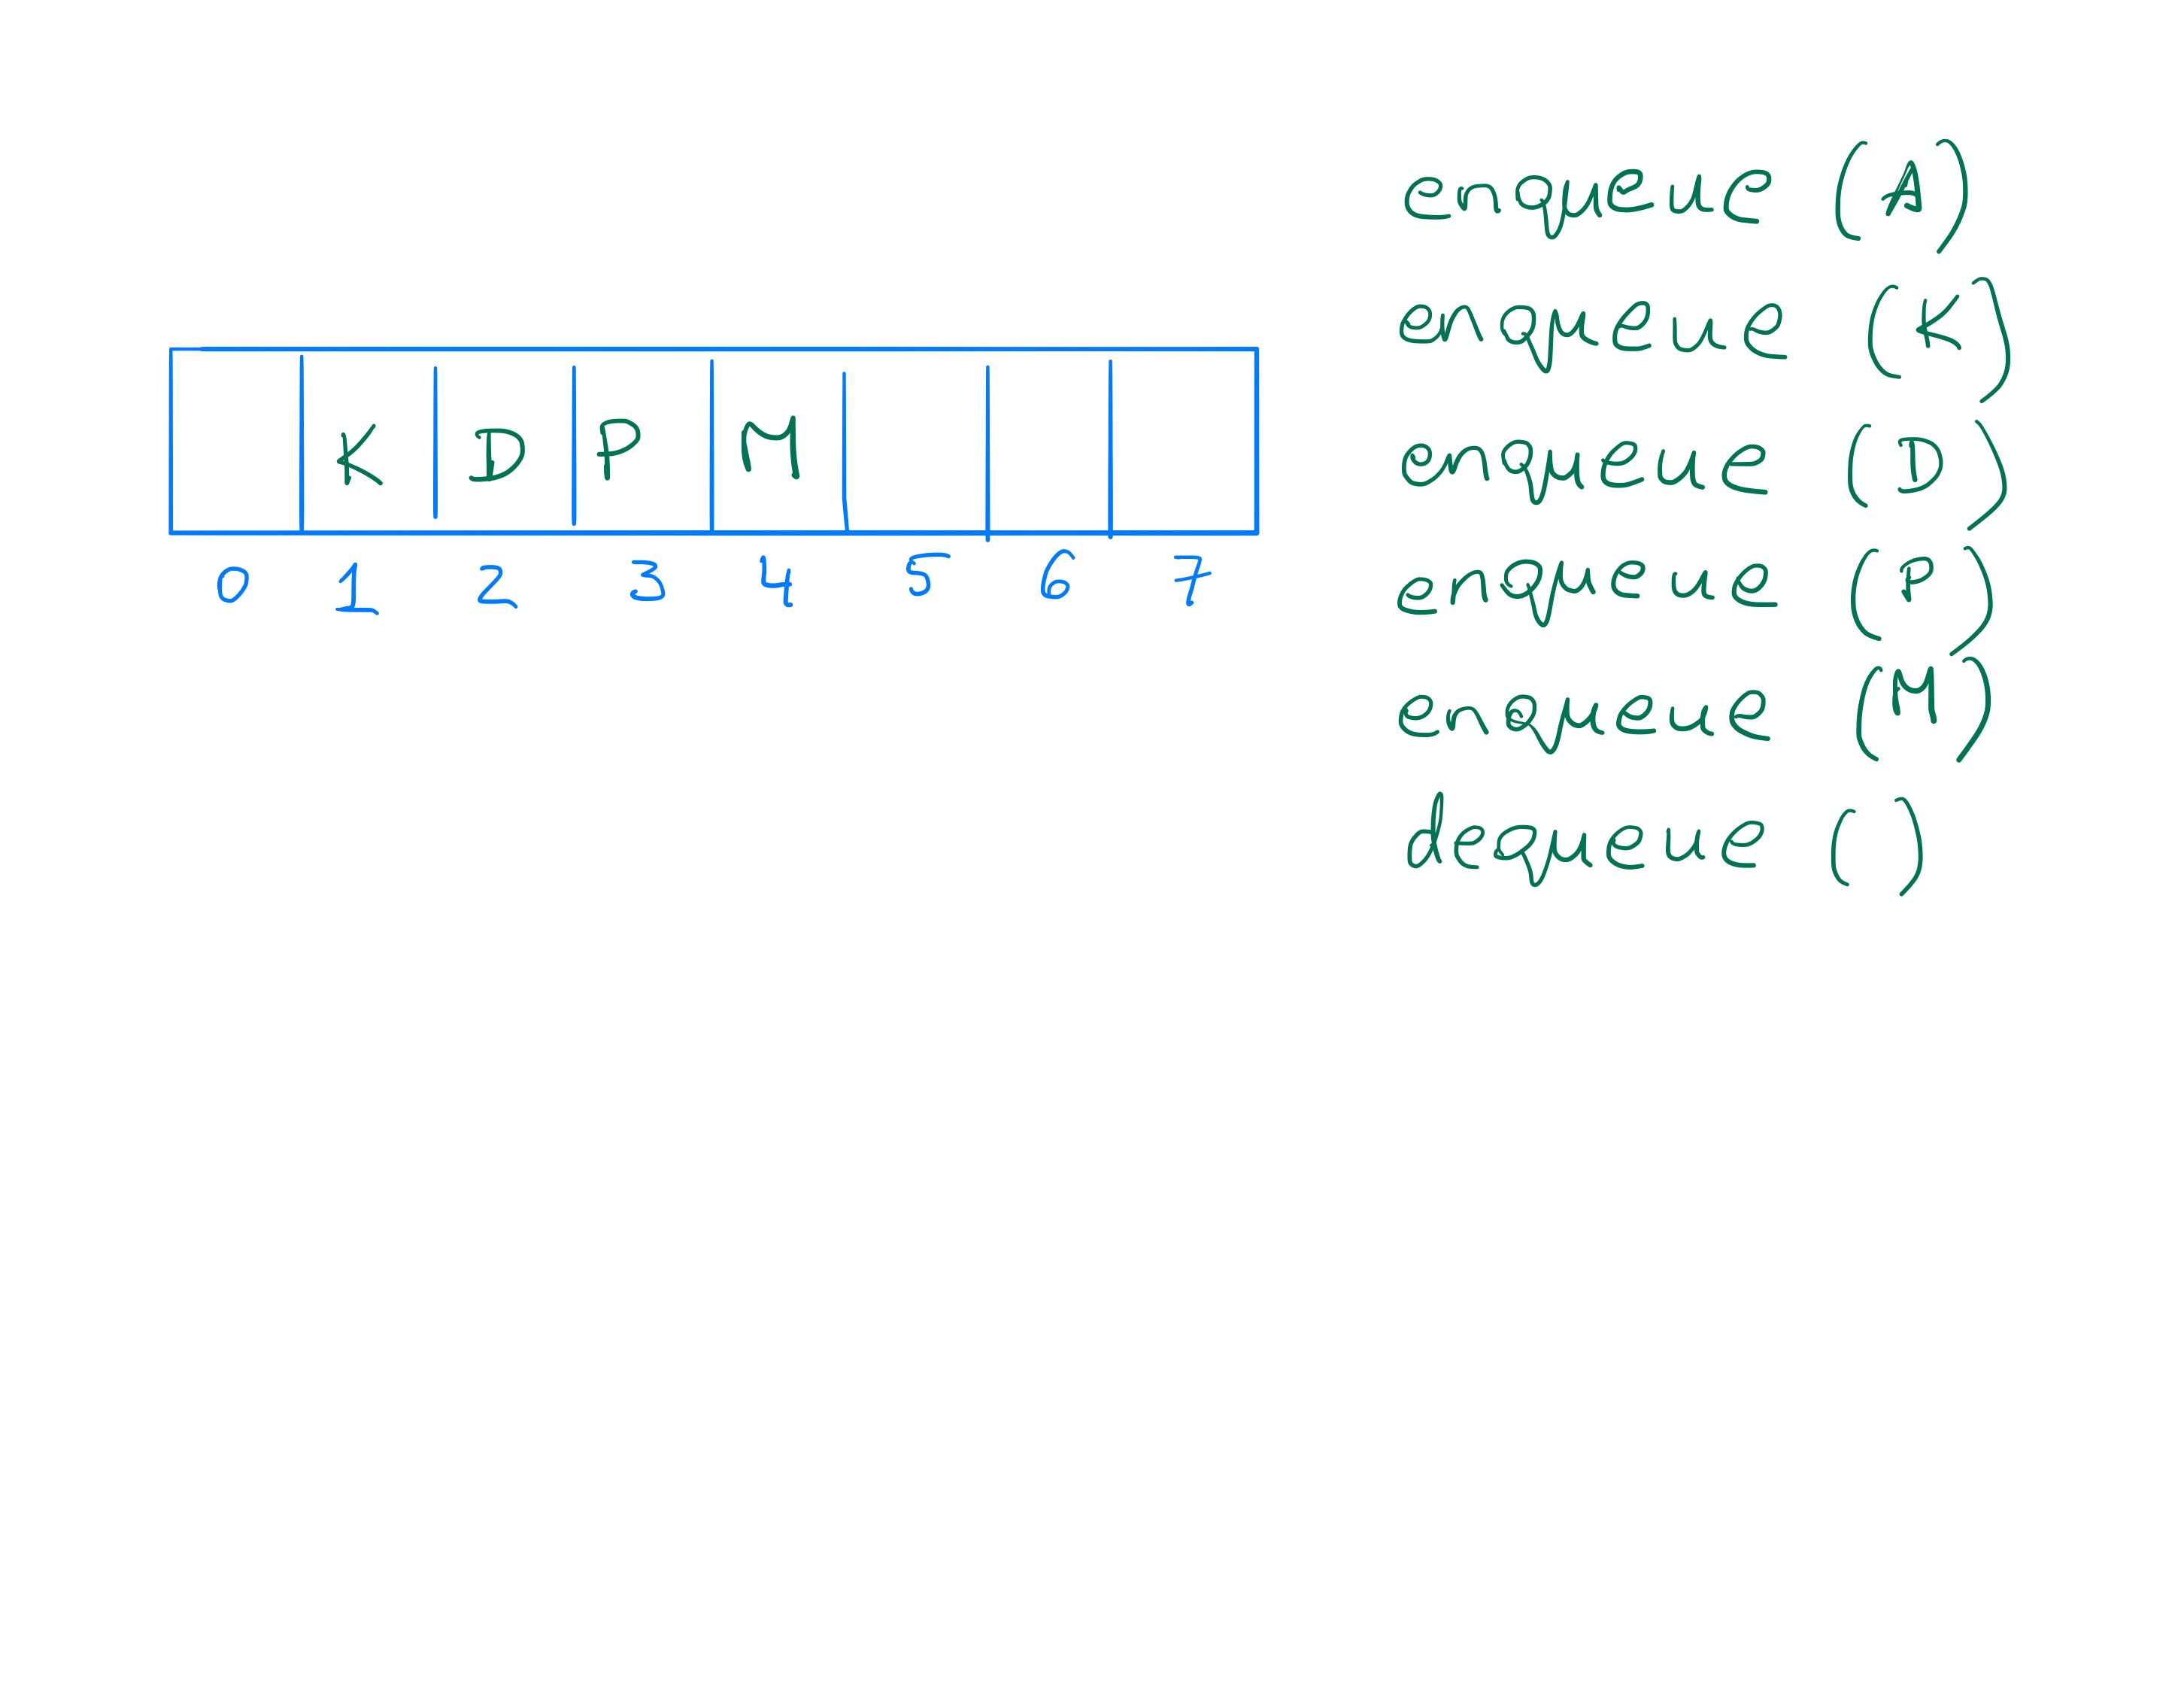 K D P M
0 1 2 3 4 5 6 7
enqueue (A)
enqueue (K)
enqueue (D)
enqueue (P)
enqueue (M)
dequeue ( )